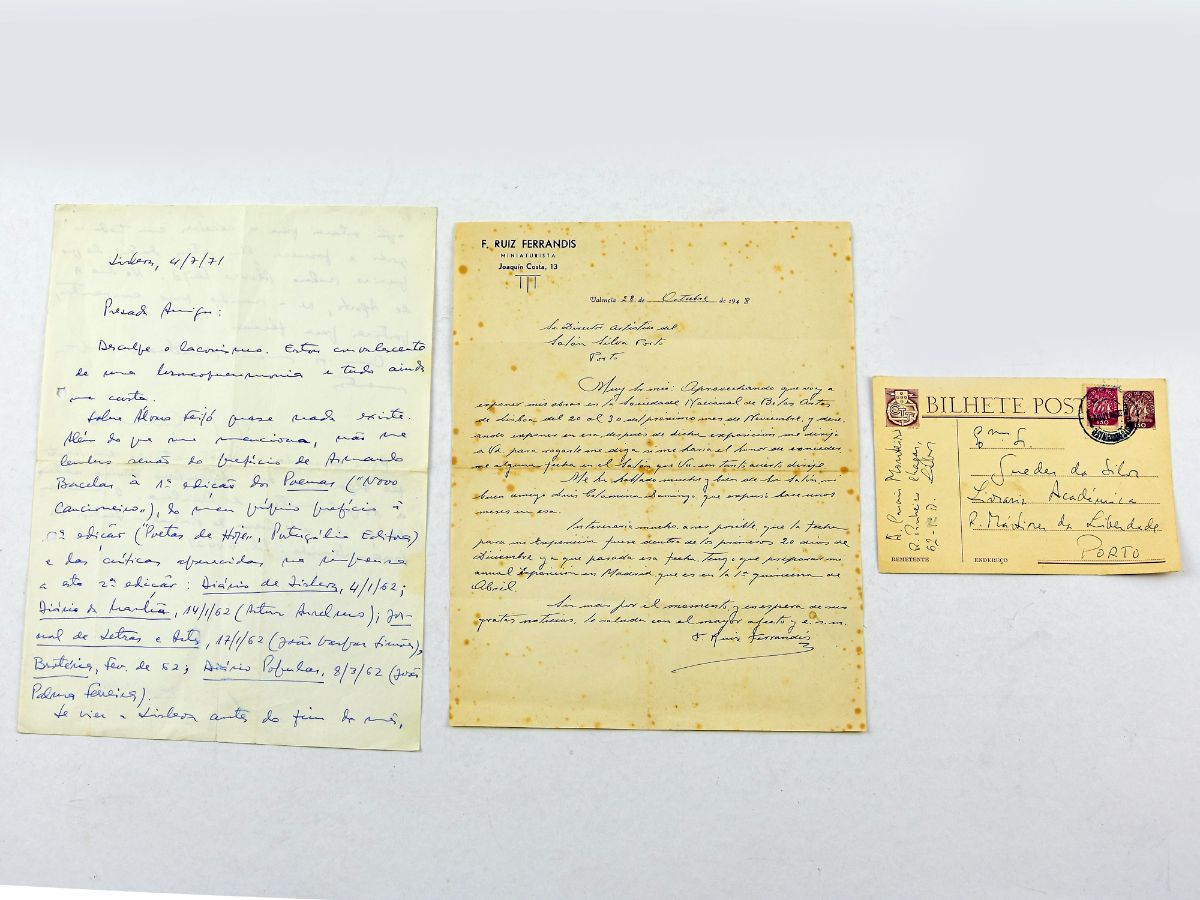 Lisboa, 4/7/71
Prezado Amigo:
Desculpe o laconismo. Estou convalescente
de uma broncopneumonia e tudo ainda
me custa.
Sobre Álvaro Feijó quase nada existe.
Além do que me menciona, não me
lembro senão do prefácio de Armando
Bacelar à 1ª edição dos Poemas ("Novo
Cancioneiro"), do meu próprio prefácio à
2ª edição ("Poetas de Hoje", Portugália Editora)
e das críticas aparecidas na imprensa
a esta 2ª edição: Diário de Lisboa, 4/1/62;
Diário da Manhã, 14/1/62 (Artur Anselmo); Jor-
nal de Letras e Artes, 17/1/62 (João Gaspar Simões),
Brotéria, Fev. de 62; Diário Popular, 8/3/62 (João
Palma Ferreira).
Se vier a Lisboa antes do fim do mês,
F. RUIZ FERRANDIS
MINIATURISTA
Joaquín Costa, 13
Valencia 28 de Octubre de 1948
Sr Director Artístico del
Salón Silva Porto
Porto
Muy Sr. mio: Aprovechando que voy a
exponer mis obras en la Sociedade Nacional de Belas Artes
de Lisboa del 20 al 30 del próximo mes de Noviembre, y dese-
ando exponer en esa despues de dicha exposición me dirijo
a Vd para rogarle me diga si me haria el honor de concederme
alguna fecha en el Salón que Vd. con tanto acierto dirige.
Me ha hablado mucho y bien de su Salón mi
buen amigo Luis Domingo que expuso hace unos
meses en esa.
Interesaria mucho, a ser posible, que la fecha
para mi Exposición fuera dentro de los primeros 20 dias de
Diciembre ya que pasada esa fecha tengo que preparar mi
anual Exposición en Madrid que es en la 1ª quincena de
Abril.
Sin mas por el momento, y en espera de sus
gratas noticias, le saluda con el mayor afecto y e. s. m.
F Ruiz Ferrandis
BILHETE POST
CTT
1$50
Guedes da Silva
Livraria Académica
R. Mártires da Liberdade
PORTO
R. Pinheiro Chagas,
Lisboa
REMETENTE
ENDEREÇO